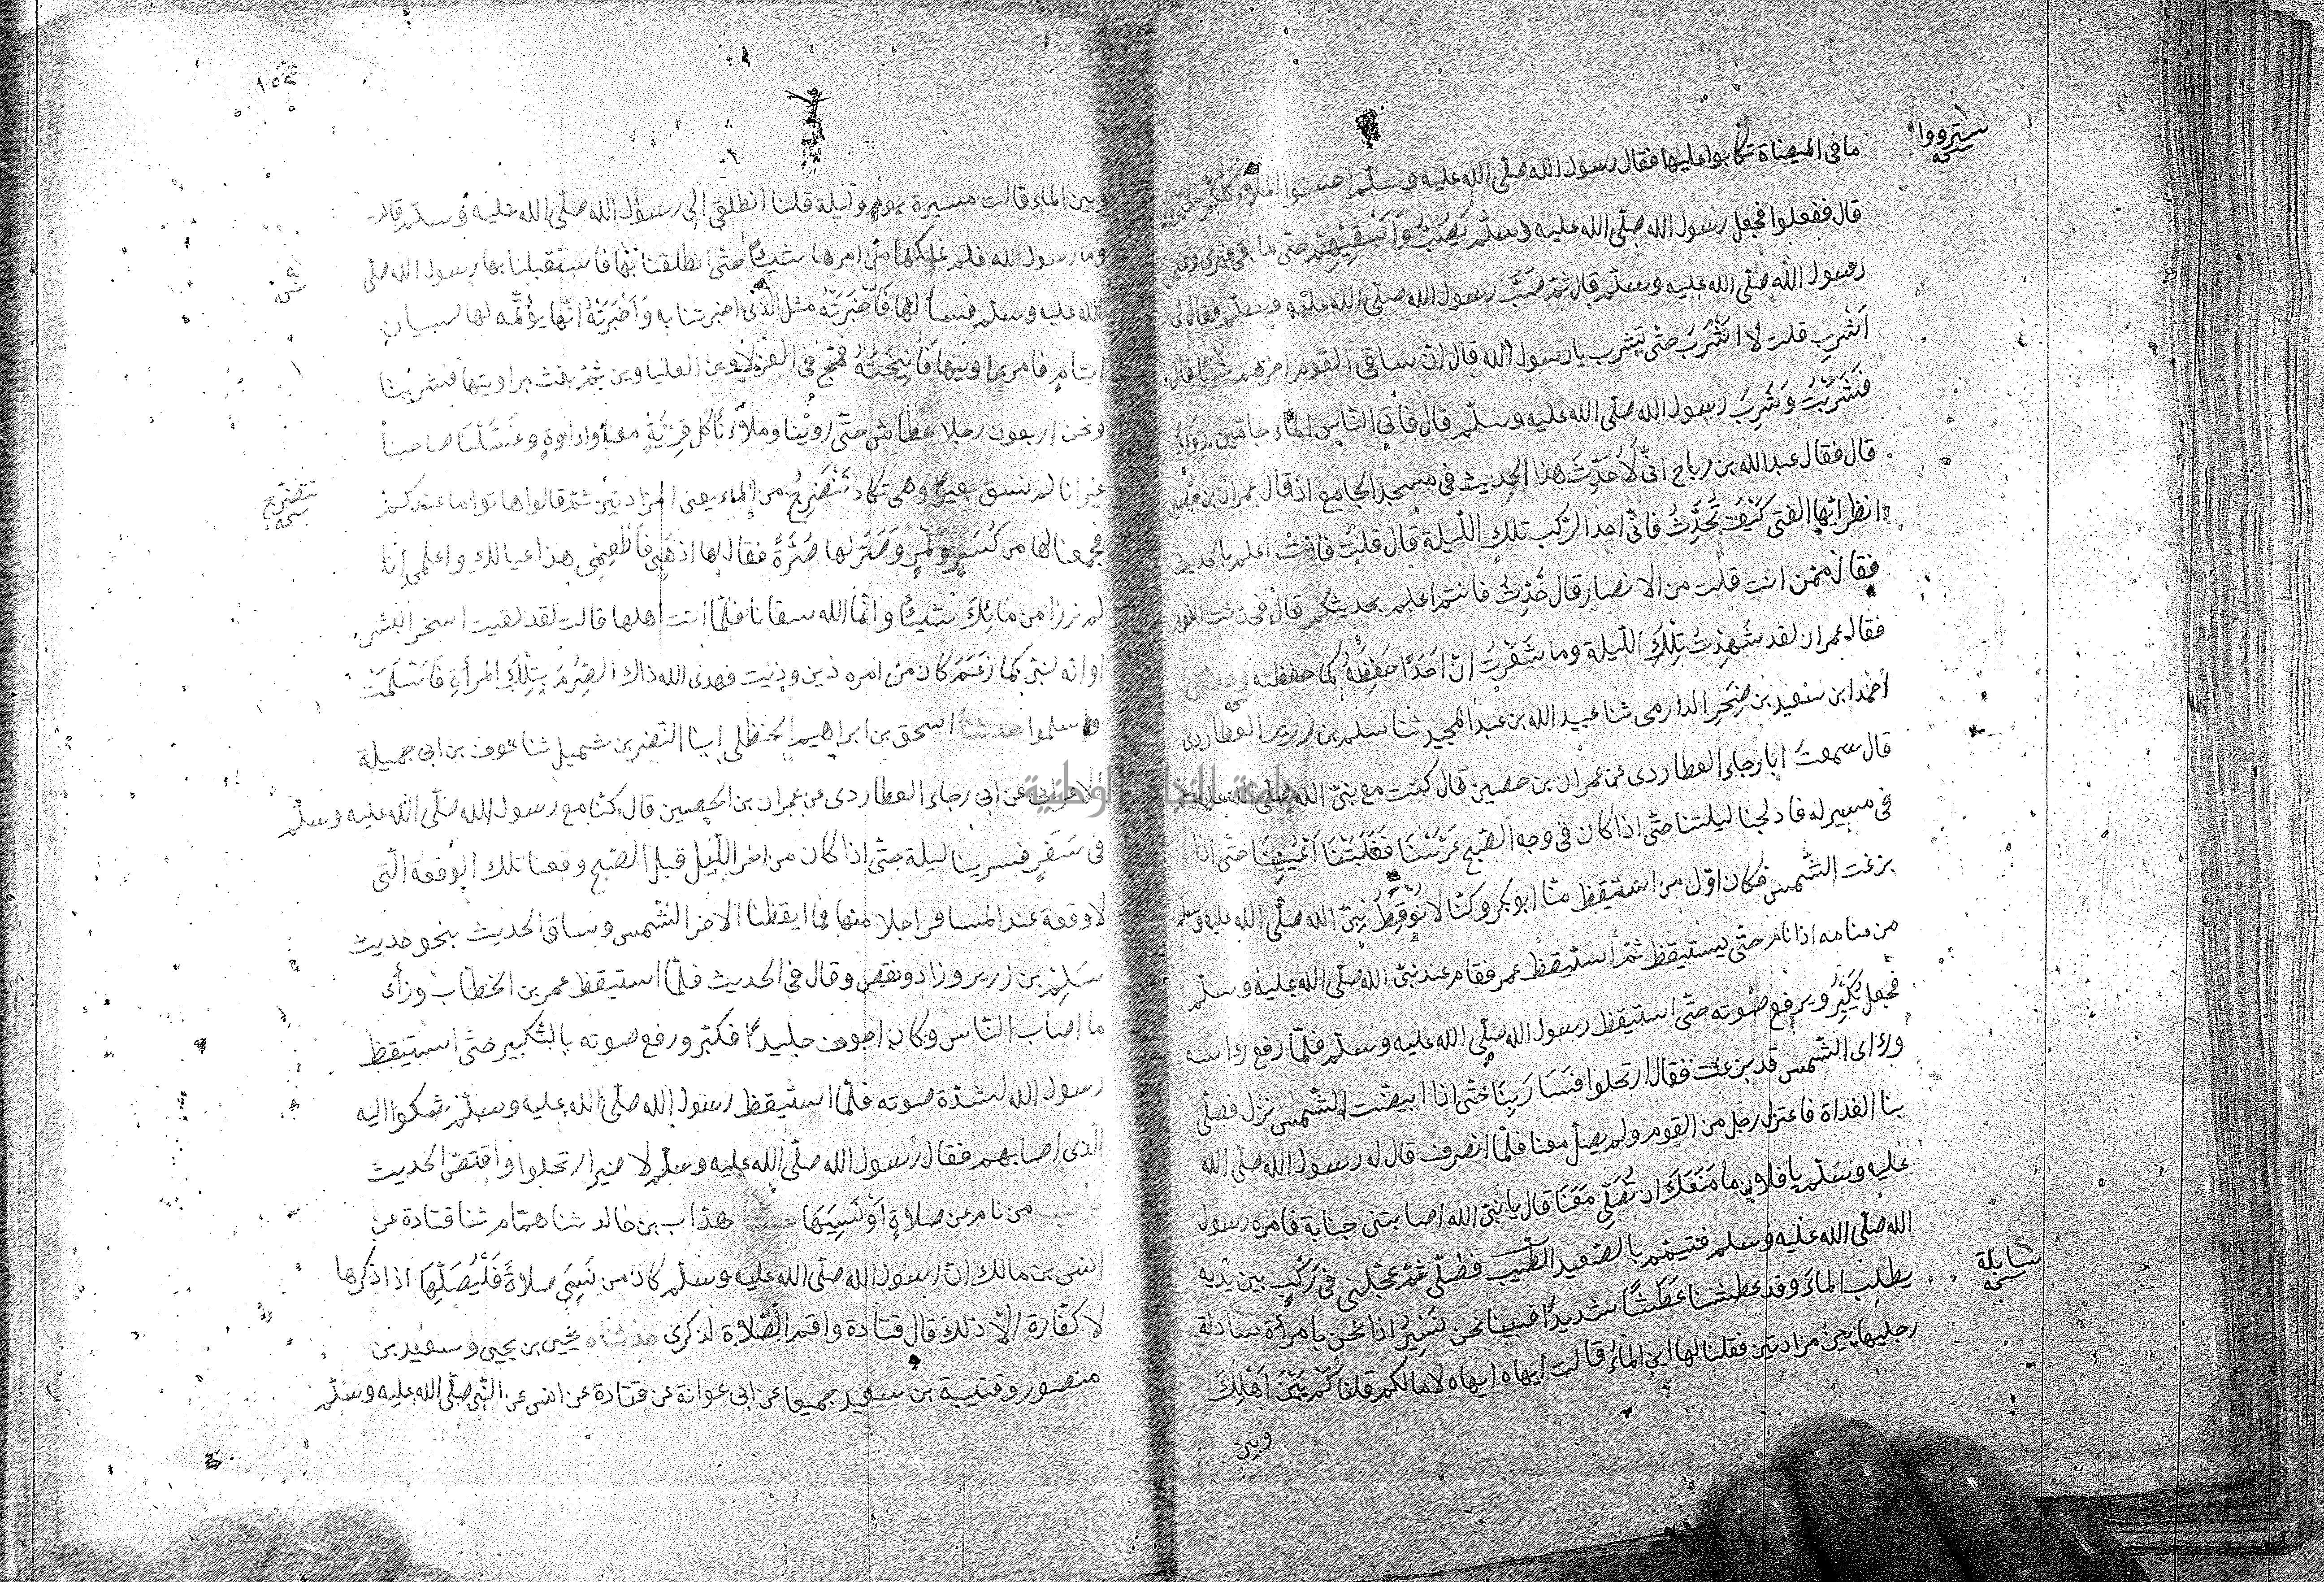 ما في الميضاة تكابوا عليها فقال رسول الله صلى الله عليه وسلم احسنوا الملاء كلكم سيروى
سيرووا
نسخه
قال ففعلوا فجعل رسول الله صلى الله عليه وسلم يَصُبُّ وَأَسْقِيْهِمْ حتى ما بقى غيرى وغير
رسول الله صلى الله عليه وسلم قال ثم صَبَّ رسول الله صلى الله عليه وسلم فقال لى
اَشْرِب قلت لا اشْرَبَ حتى تشرب يا رسول الله قال ان ساقى القوم اخرهم شربًا قال
فَشَرِبْتُ وَشَرِبَ رسول الله صلى الله عليه وسلم قال فأتى الناس الماء جامين رِوَاءً
قال فقال عبد الله بن رباح انى لَاُحَدِّثَ هذا الحديث فى مسجد الجامع اذ قال عمران بن حصين
انظر ايها الفتى كَيْفَ تُحَدِّثُ فانى احد الركب تلك الليلة قال قلت فانت اعلم بالحديث
فقال ممن انت قلت من الانصار قال حَدِّثْ فانتم اعلم بحديثكم قال فحدثت القوم
فقال عمران لقد شَهِدْتُ تِلْكَ الليلة وما شَعَرْتُ انّ اَحَدًا حَفِظَهُ كما حفظته وحدثنى
احمد ابن سعيد بن صَخَرٍ الدارمى ثنا عبيد الله بن عبد المجيد ثنا سلم بن زرير العطاردى
قال سمعت ابا رجاء العطاردى عن عمران بن حصين قال كنت مع نبى الله صلى الله عليه وسلم
فى مسير له فادلجنا ليلتنا حتى اذا كان فى وجه الصبح عَرَّسْنَا فَغَلَبَتْنَا اَعْيُنِنَا حتى اذا
بزغت الشمس فكان اول من استيقظ منا ابو بكر وكنا لا نُوقِظُ نبى الله صلى الله عليه وسلم
من منامه اذا نام حتى يستيقظ ثم استيقظ عمر فقام عند نبى الله صلى الله عليه وسلم
فجعل يُكَبِّرُ ويرفع صوته حتى استيقظ رسول الله صلى الله عليه وسلم فلما رفع راسه
وراى الشمس قد بزغت فقال ارتحلوا فَسَارَ بِنَا حتى اذا ابيضت الشمس نزل فصلى
بنا الغداة فاعتزل رجل من القوم ولم يصل معنا فلما انصرف قال له رسول الله صلى الله
عليه وسلم يا فلان ما مَنَعَكَ ان تُصَلِّى مَعَنَا قال يا نبى الله اصابتنى جنابة فامره رسول
الله صلى الله عليه وسلم فتيمم بالصعيد الطيب فصلى ثم عجلنى فى رَكْبٍ بين يديه
يطلب الماء وقد عطشنا عَطَشًا شديدًا فبينا نحن نَسِيرُ اذا نحن بامرأة سادلة
سابلة
نسخه
رجليها بين مزادتين فقلنا لها اين الماء قالت ايهاه ايهاه لا ما لكم قلنا كَمْ بَيْنَ اَهْلِكَ
وبين
١٥٤
وبين الماء قالت مسيرة يوم وليلة قلنا انطلقى الى رسول الله صلى الله عليه وسلم قالت
وما رسول الله فلم نملكها من امرها شيئًا حتى انطلقنا بها فاستقبلنا بها رسول الله صلى
الله عليه وسلم فسألها فَأَخْبَرَتْهُ مثل الذى اخبرتنا به وَأَخْبَرَتْهُ انها مؤتمه لها صبيان
ايتام فامر براويتها فَأُنِيخَتْ فمج فى العزلاوين العلياوين ثم بعث براويتها فشربنا
ونحن اربعون رجلا عطاش حتى روينا وملأنا كل قِرْبَةٍ معنا واداوةٍ وغَسَّلْنَا صاحبنا
غير انا لم نسق بعيرًا وهى تكاد تَنْضَرِجُ من الماء يعنى المزادتين ثم قال هاتوا ما عندكم
تتضرج
نسخه
فجمعنا لها من كُسَرٍ وَتَمْرٍ وَصَرَّ لها صُرَّةً فقال لها اذهبى فَأَطْعِمِى هذا عيالك واعلمى انا
لم نرزا من مَائِكَ شيئًا وانما الله سقانا فلما اتت اهلها قالت لقد لقيت اسحر البشر
او انه لنبى كما زَعَمَ كان من امره ذيت وذيت فهدى الله ذاك الصِّرْمَ بِتِلْكَ المرأةِ فَأَسْلَمَتْ
واسلموا حدثنا اسحق بن ابراهيم الحنظلى ابنا النضر بن شميل ثنا عوف بن ابى جميلة
الاعرابى عن ابى رجاء العطاردى عن عمران بن الحصين قال كنا مع رسول الله صلى الله عليه وسلم
فى سَفَرٍ فسرينا ليلة حتى اذا كان من اخر الليل قبل الصبح وقعنا تلك الوقعة التى
لا وقعة عند المسافر احلا منها فما ايقظنا الا حر الشمس وساق الحديث بنحو حديث
سَلْمِ بن زرير وزاد ونقص وقال فى الحديث فلما استيقظ عمر بن الخطاب ورأى
ما اصاب الناس وكان اجوف جليدًا فكبر ورفع صوته بالتكبير حتى استيقظ
رسول الله لشدة صوته فلما استيقظ رسول الله صلى الله عليه وسلم شكوا اليه
الذى اصابهم فقال رسول الله صلى الله عليه وسلم لا ضير ارتحلوا واقتص الحديث
باب من نام عن صلاةٍ أَوْ نَسِيَهَا حدثنا هداب بن خالد ثنا همام ثنا قتادة عن
انس بن مالك ان رسول الله صلى الله عليه وسلم كان من نَسِىَ صلاةً فَلْيُصَلِّهَا اذا ذكرها
لا كفارة الا ذلك قال قتادة واقم الصلاة لذكرى حدثناه يحيى بن يحيى وسعيد بن
منصور وقتيبة بن سعيد جميعا عن ابى عوانة عن قتادة عن انس عن النبى صلى الله عليه وسلم
جامعة النجاح الوطنية